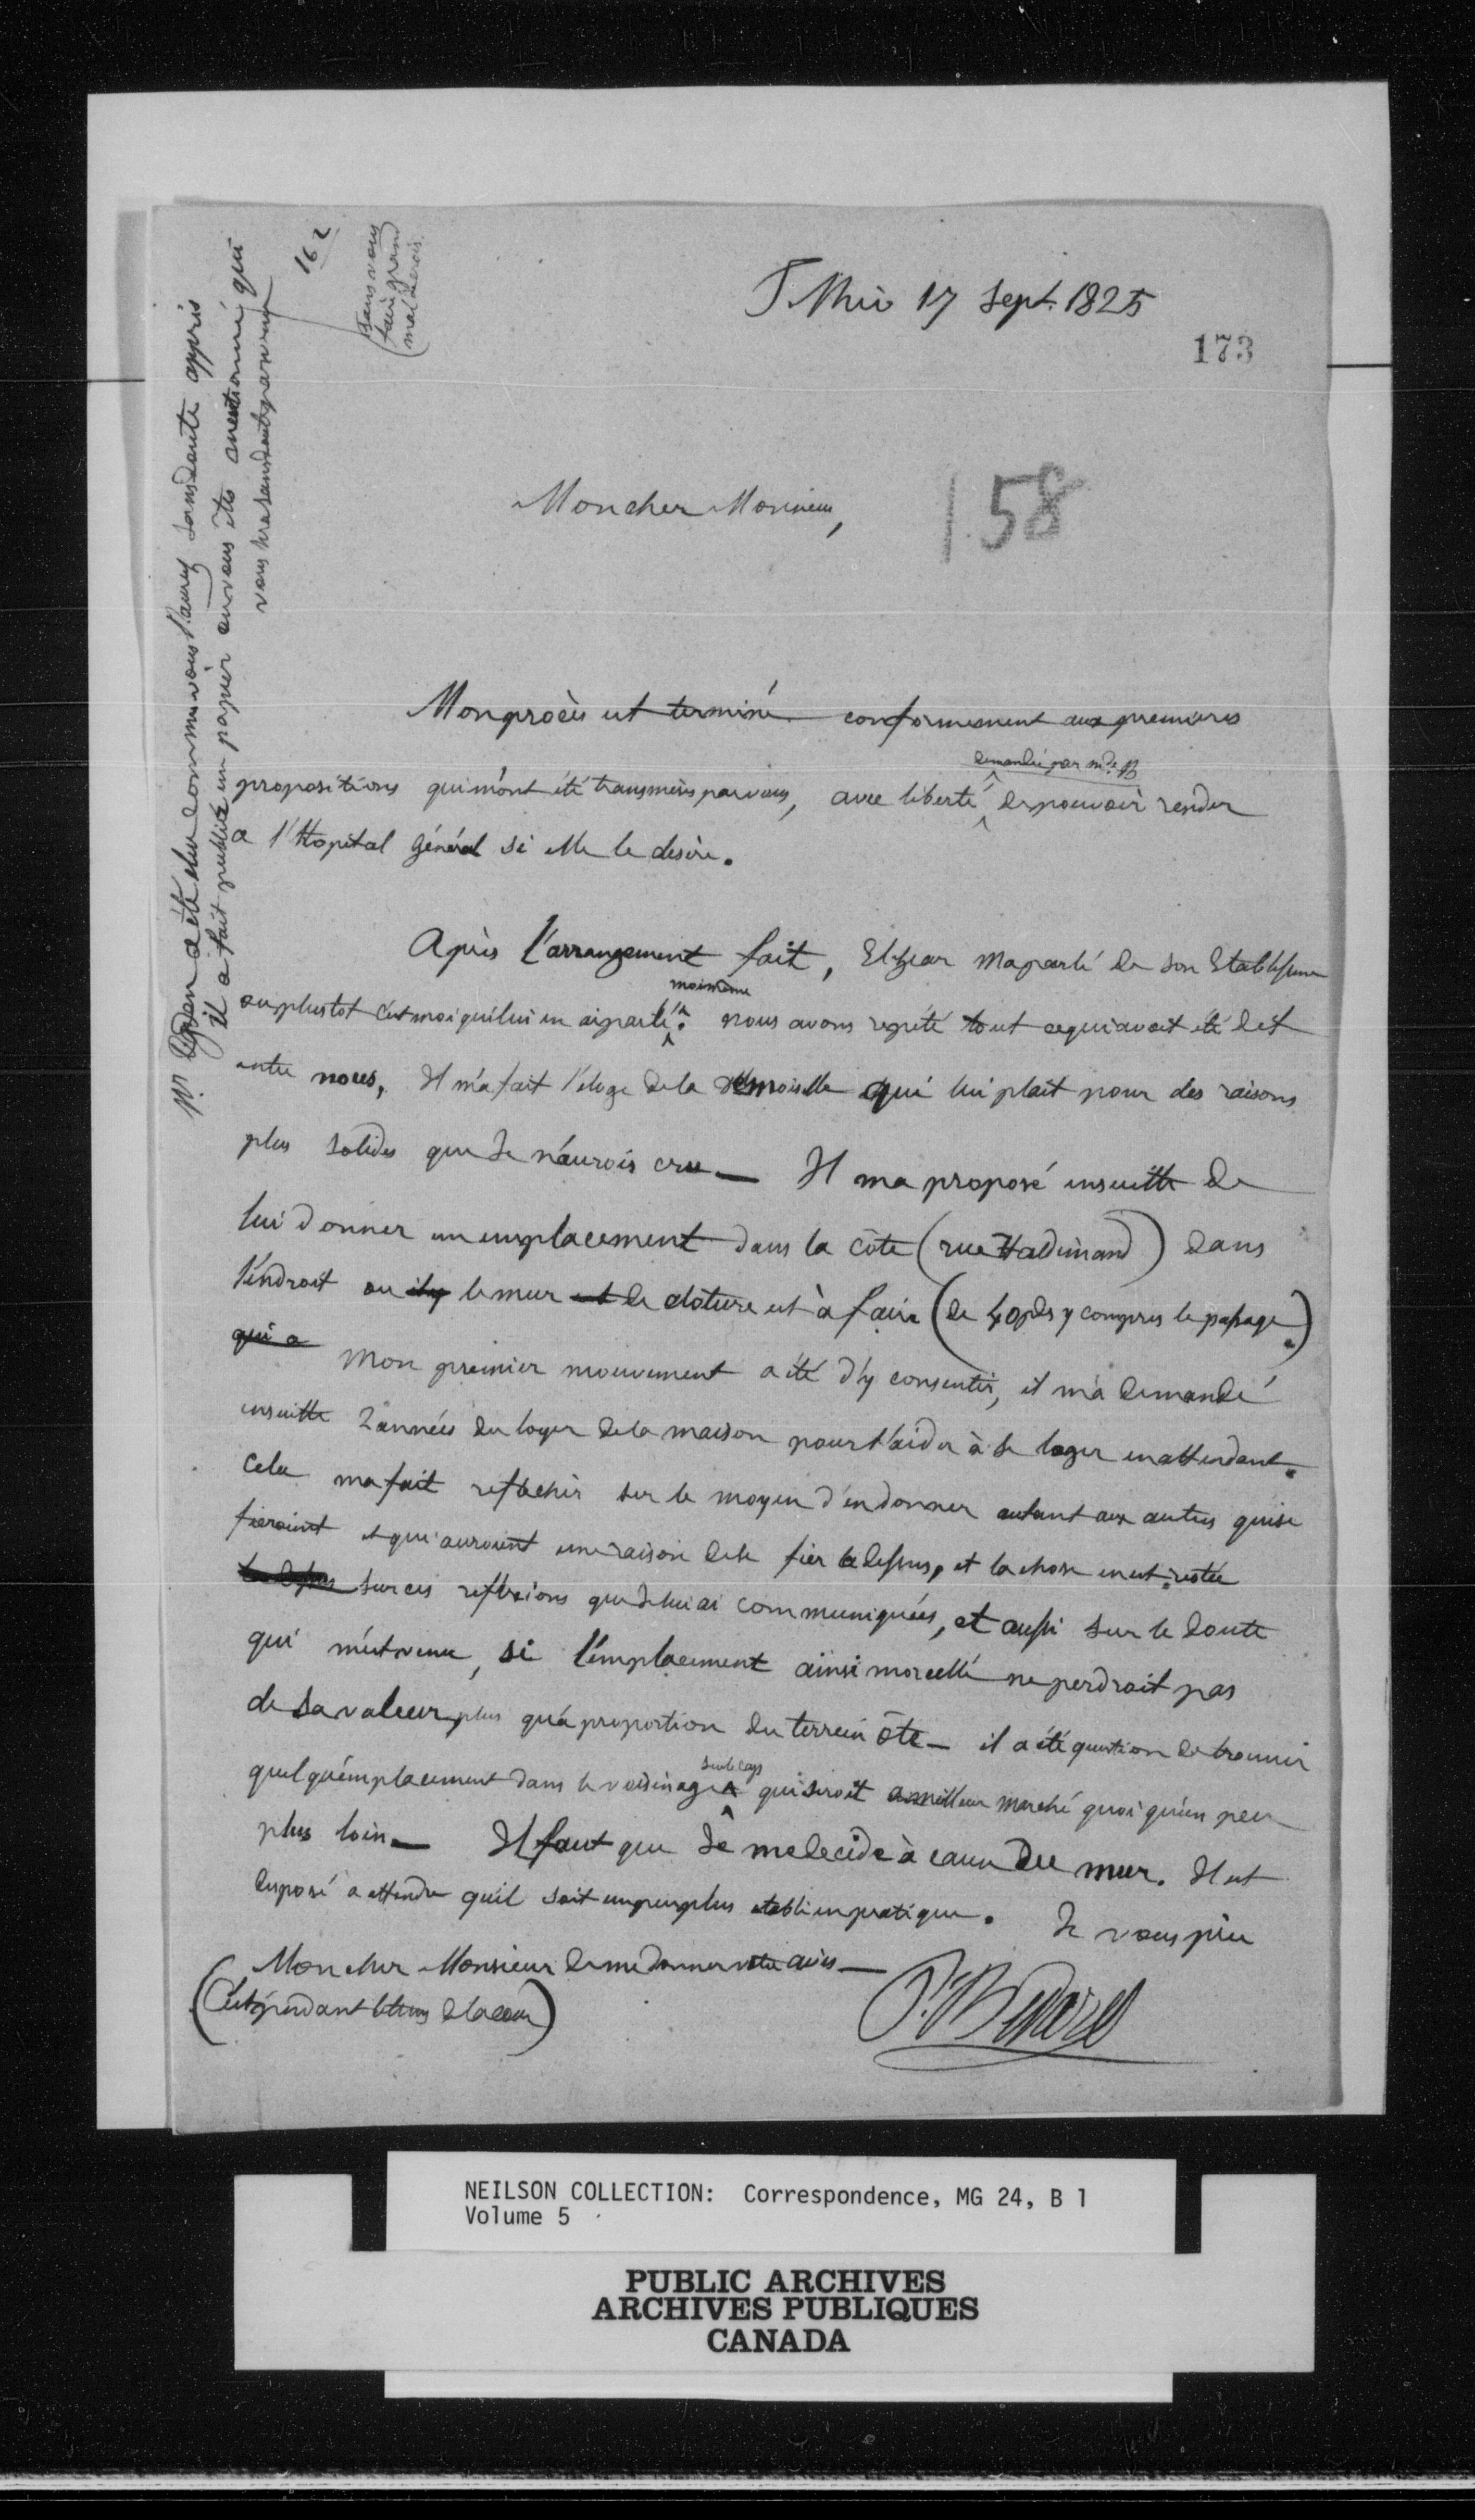 T. Riv 17 Sept. 1825
173
Mon cher Monsieur,
158
Mon procès est terminé conformement aux premieres
propositions qui m'ont été transmises par vous, avec liberté demandée par mde B de pouvoir resider
a l'Hopital Général si elle le desire.
Après l'arrangement fait, Elzear m'a parlé de son Etablissem
ou plustot c'est moi qui lui en ai parlé moi même. nous avons repété tout ce qui avoit été dit
entre nous, Il m'a fait l'eloge de la Demoiselle qui lui plait pour des raisons
plus solides que Je n'aurois cru — Il m'a proposé ensuitte de
lui donner un emplacement dans la côte (rue Haldimand) dans
l'endroit ou il y le mur est de cloture est à faire (de 40 pds y compris le passage.)
qui a Mon premier mouvement a été d'y consentir, il m'a demandé
ensuitte 2 années du loyer de la maison pour l'aider à se loger en attendant.
Cela m'a fait reflechir sur le moyen d'en donner autant aux autres qui se
fieroient et qui auroient une raison de se fier la dessus, et la chose en est restée
la dessus sur ces reflexions que Je lui ai communiquées, et aussi sur le doute
qui m'est venu, si l'emplacement ainsi morcellé ne perdroit pas
de sa valeur plus qu'a proportion du terrein ôté — il a été question de trouver
quelqu'emplacement dans le voisinage sur le cap qui seroit a meilleur marché quoi qu'un peu
plus loin — Il faut que Je me decide à cause du mur. Il est
disposé a attendre qu'il soit un peu plus etabli en pratique. Je vous prie
Mon cher Monsieur de me donner votre avis —
(C'est pendant le tems de la cour)
P. Bedard
Mr Ogden a été elu comme vous l'aurez sans doute appris
il a fait publié un papier ou vous êtes mentionné qui
vous sera sans doute parvenu
162
(sans vous
faire grand
mal Je crois.
NEILSON COLLECTION: Correspondence, MG 24, B 1
Volume 5
PUBLIC ARCHIVES
ARCHIVES PUBLIQUES
CANADA